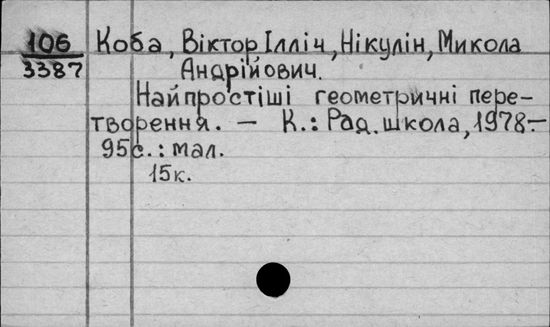 106 Коба, Віктор Ілліч, Нікулін, Микола
3387 Андрійович.
Найпростіші геометричні пере-
творення. — К.: Рад. школа, 1978.—
95с.: мал.
15к.